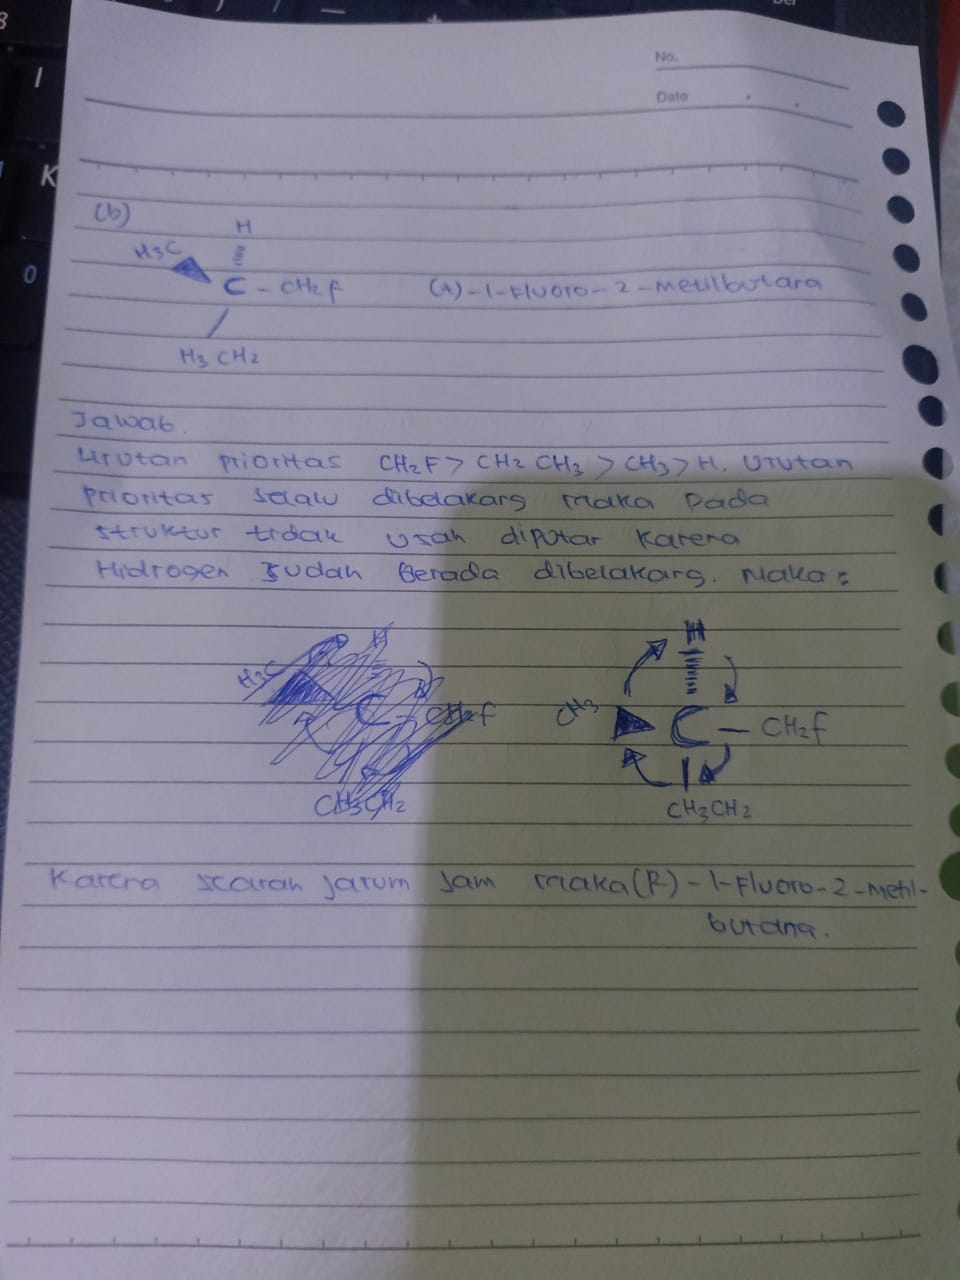 No.
Date
(b)
H
H3C
C - CH2F (+)-1-Fluoro-2-metilbutana
H3 CH2
Jawab.
Urutan prioritas CH2F > CH2 CH3 > CH3 > H. Urutan
prioritas selalu dibelakang maka pada
struktur tidak usah diputar karena
Hidrogen sudah berada dibelakang. Maka:
H3C
H
C - CH2F
CH3CH2
H
CH3 C - CH2F
CH3CH2
Karena searah jarum jam maka (R)-1-Fluoro-2-metil-
butana.